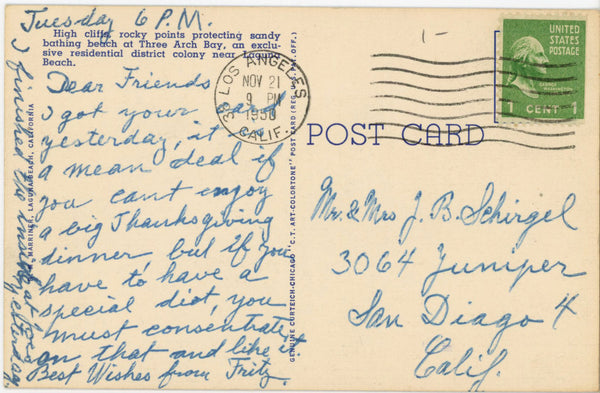 Tuesday 6 P.M.
High cliffs, rocky points protecting sandy
bathing beach at Three Arch Bay, an exclu-
sive residential district colony near Laguna
Beach.
Dear Friends
I got your card
yesterday, it is
a mean deal if
you cant enjoy
a big Thanksgiving
dinner but if you
have to have a
special diet, you
must consentrate
on that and like it
Best Wishes from Fritz.
I finished the inside
yesterday.
MARRINER, LAGUNA BEACH, CALIFORNIA
GENUINE CURTEICH-CHICAGO "C.T. ART-COLORTONE" POST CARD (REG. U.S. PAT. OFF.)
LOS ANGELES
38
NOV 21
9 PM
1950
CALIF.
1-
UNITED
STATES
POSTAGE
1 CENT 1
POST CARD
Mr. & Mrs J. B. Schirgel
3064 Juniper
San Diago 4
Calif.